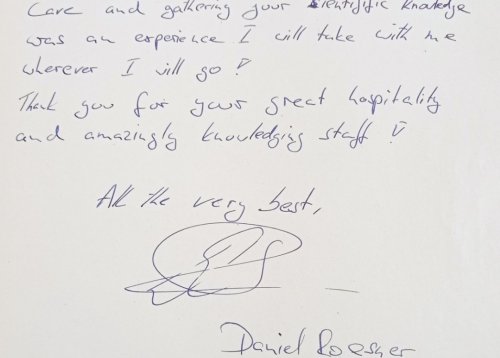 Care and gathering your scientific knowledge
was an experience I will take with me
wherever I will go!
Thank you for your great hospitality
and amazingly knowledging staff!
All the very best,
Daniel Roesner